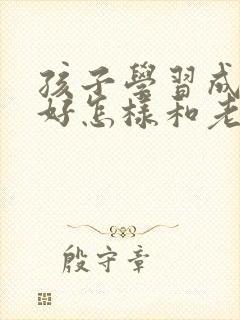 孩子學習成
好怎樣和老
殷守章